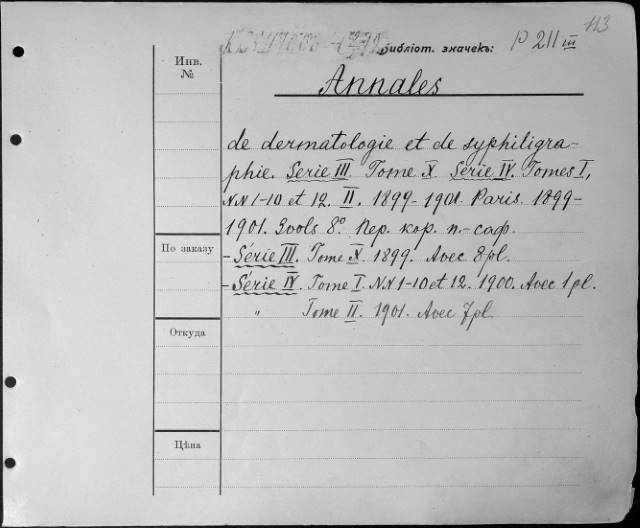 113
Библіот. значекъ: P 211 III
Инв.
№
Annales
de dermatologie et de syphiligra-
phie. Serie III. Tome X. Serie IV. Tomes I,
NN 1-10 et 12. II. 1899-1901. Paris. 1899-
1901. 3 vols 8°. Пер. кор. п.-саф.
По заказу
- Série III. Tome X. 1899. Avec 8 pl.
- Série IV. Tome I. NN 1-10 et 12. 1900. Avec 1 pl.
" Tome II. 1901. Avec 7 pl.
Откуда
Цѣна